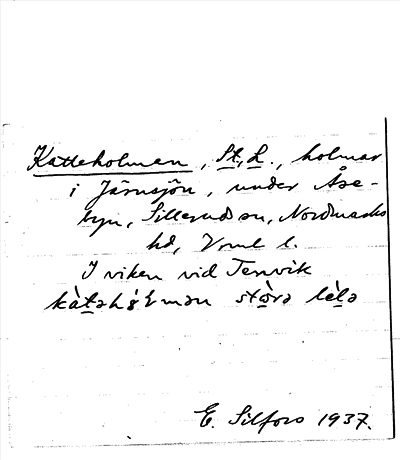 Katteholmen, St, L., holmar
i Järnsjön, under Åse-
byn, Sillerud sn, Nordmarks
hd, Vrml l.
I viken vid Tenvik
stòra
E. Silfors 1937.